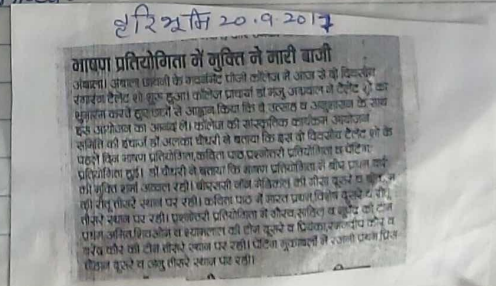 हरिभूमि 20.9.2017
भाषण प्रतियोगिता में मुक्ति ने मारी बाजी
अंबाला। अंबाला छावनी के गवर्नमेंट पीजी कॉलेज में आज से दो दिवसीय
टैलेंट शो शुरू हुआ। कॉलेज प्राचार्य डॉ मंजू अग्रवाल ने टैलेंट शो का
शुभारंभ करते हुए छात्रों से आह्वान किया कि वे उत्साह व अनुशासन के साथ
इस आयोजन का आनंद लें। कॉलेज की सांस्कृतिक कार्यक्रम आयोजन
समिति की इंचार्ज डॉ अलका चौधरी ने बताया कि इस दो दिवसीय टैलेंट शो के
पहले दिन भाषण प्रतियोगिता, कविता पाठ, प्रश्नोतरी प्रतियोगिता व पेंटिंग
प्रतियोगिता हुई। डॉ चौधरी ने बताया कि भाषण प्रतियोगिता में
की मुक्ति शर्मा अव्वल रही। बीएससी नॉन मेडिकल की मीसा दूसरे व
की रीतू तीसरे स्थान पर रही। कविता पाठ में भारत प्रथम, विशेष दूसरे व
तीसरे स्थान पर रही। प्रश्नोतरी प्रतियोगिता में गौरव, साहिल व की टीम
प्रथम, व की टीम दूसरे व प्रियंका, कौर व
कौर की टीम तीसरे स्थान पर रही। पेंटिंग मुकाबलों में रजनी प्रथम प्रिंस
दूसरे व अनु तीसरे स्थान पर रही।